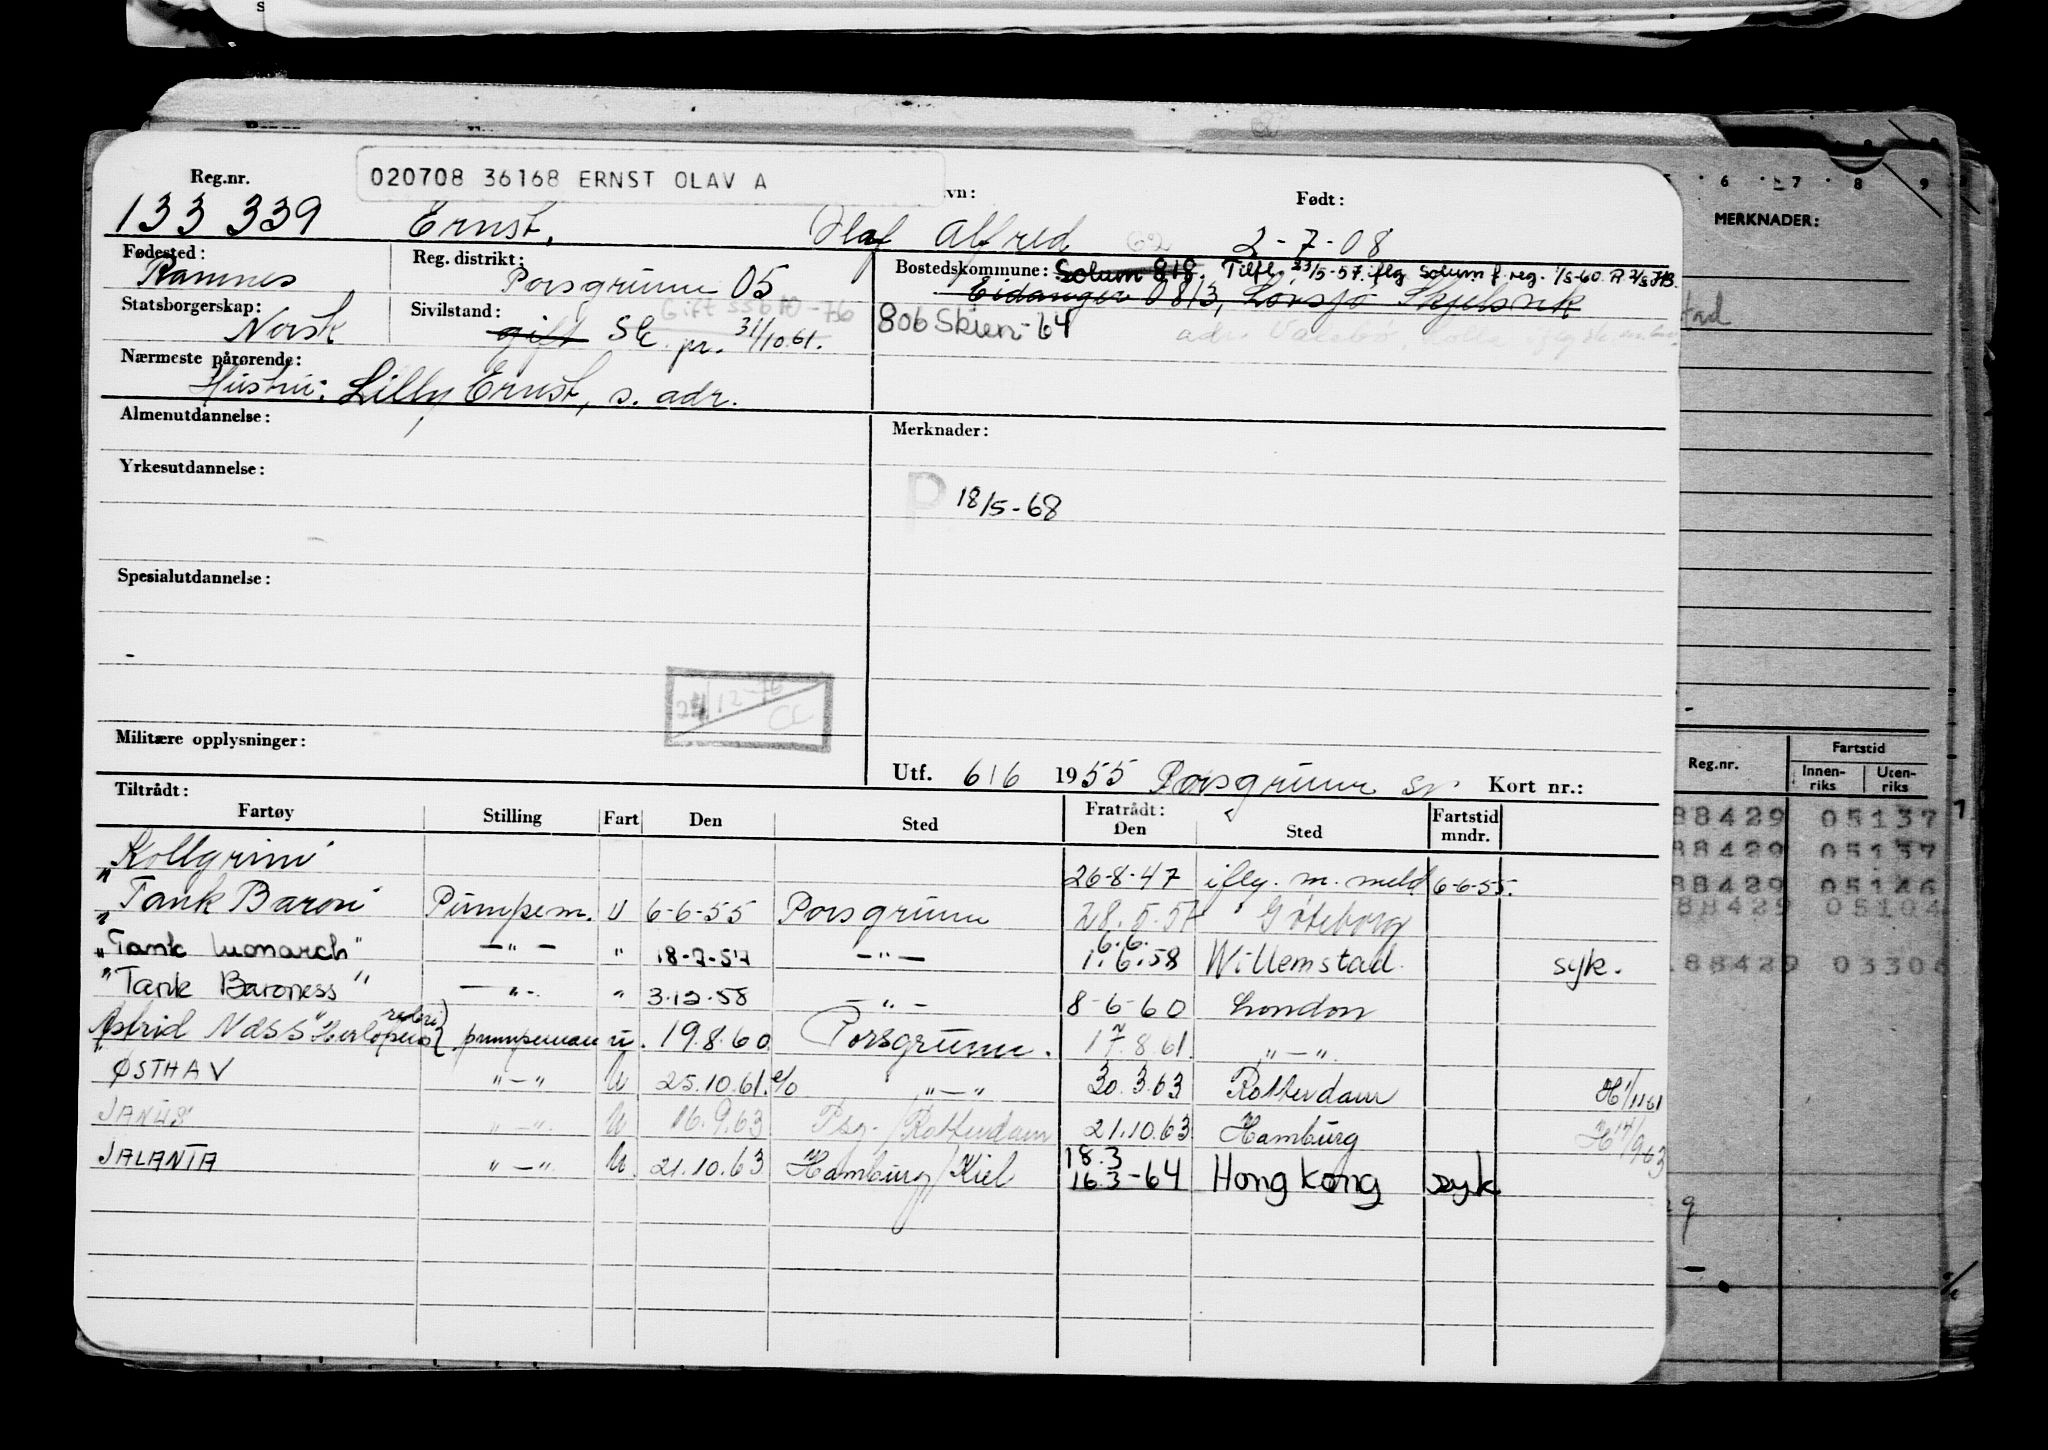 020708 36168 ERNST OLAV A
Reg.nr. vn: Født:
133 339 Ernst, Olaf Alfred 2-7-08
Fødested: Reg. distrikt: Bostedskommune: Solum 818. Tilfl. 23/5-57. iflg. Solum f.reg. 1/5-60.
Ramnes Porsgrunn 05 Eidanger 0813,
Statsborgerskap: Sivilstand: 806 Skien-64
Norsk gift SE pr. 31/10.61.
Nærmeste pårørende:
Hustru: Lilly Ernst, s. adr.
Almenutdannelse: Merknader:
Yrkesutdannelse:
P 18/5-68
Spesialutdannelse:
Militære opplysninger:
Utf. 6/6 1955 Porsgrunn Kort nr.:
Tiltrådt: Fratrådt: Fartstid
Fartøy Stilling Fart Den Sted Den Sted mndr.
"Kollgrim" 26-8-47 iflg. m. meld 6-6-55.
"Tank Baron" Pumpem. U 6-6-55 Porsgrunn 28.5.57 Göteborg
"Tank Monarch" -"- " 18-7-57 -"- 6.6. 1.6.58 Willemstad. syk.
"Tank Baroness" -"- " 3.12.58 -"- 8-6-60 London
Astrid Næss pumpeman u. 19.8.60 Porsgrunn. 17.8.61. "-".
ØSTHAV "-" U 25.10.61. "-" 30.3.63 Rotterdam H 1/11 61
JANUS "-" U 16.9.63 Psg./Rotterdam 21.10.63 Hamburg H 14/9 63
JALANTA "-" U. 21.10.63 Hamburg/Kiel 18.3 16.3-64 Hong Kong syk
6 7 8 9
MERKNADER:
Reg.nr. Fartstid
Innen-riks Uten-riks
88429 05137
88429 05137
88429 05146
88429 05104
88429 0330